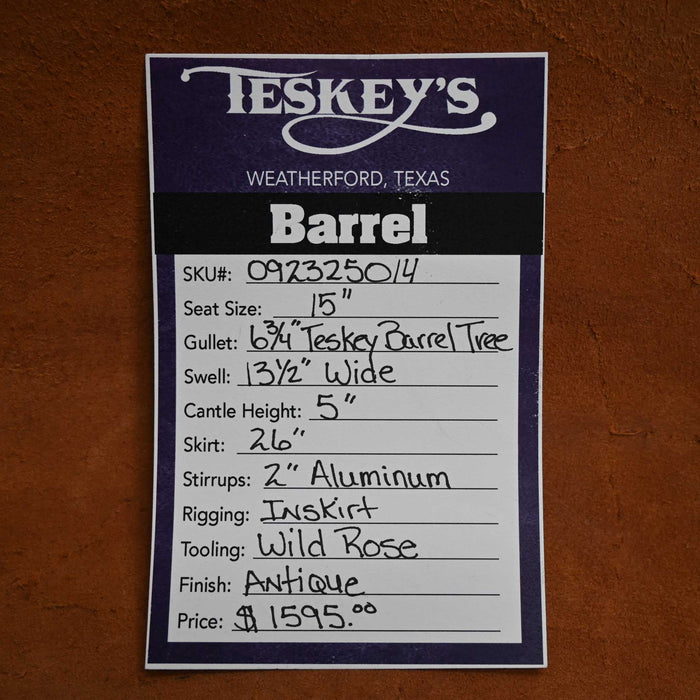 TESKEY'S
WEATHERFORD, TEXAS
Barrel
SKU#: 092325014
Seat Size: 15"
Gullet: 6¾" Teskey Barrel Tree
Swell: 13½" Wide
Cantle Height: 5"
Skirt: 26"
Stirrups: 2" Aluminum
Rigging: Inskirt
Tooling: Wild Rose
Finish: Antique
Price: $1595.00